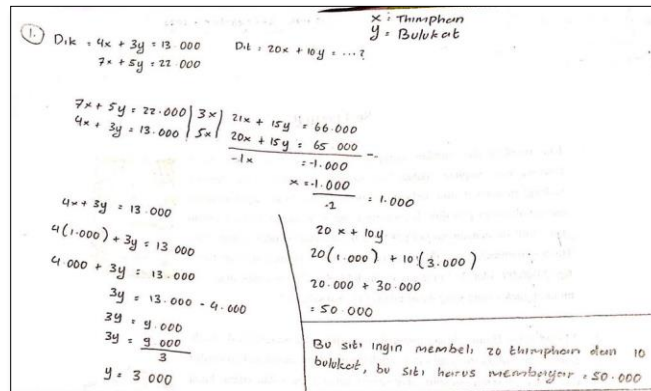 x = Thimphan
y = Bulukat
1. Dik = 4x + 3y = 13.000 Dit = 20x + 10y = ...?
7x + 5y = 22.000
7x + 5y = 22.000 | 3x | 21x + 15y = 66.000
4x + 3y = 13.000 | 5x | 20x + 15y = 65 000 -
-1x = -1.000
x = -1.000
-1 = 1.000
4x + 3y = 13.000
4(1.000) + 3y = 13 000
4.000 + 3y = 13.000
3y = 13.000 - 4.000
3y = 9.000
3y = 9 000
3
y = 3 000
20 x + 10y
20(1.000) + 10(3.000)
20.000 + 30.000
= 50.000
Bu siti ingin membeli 20 thimphan dan 10
bulukat, bu siti harus membayar = 50.000